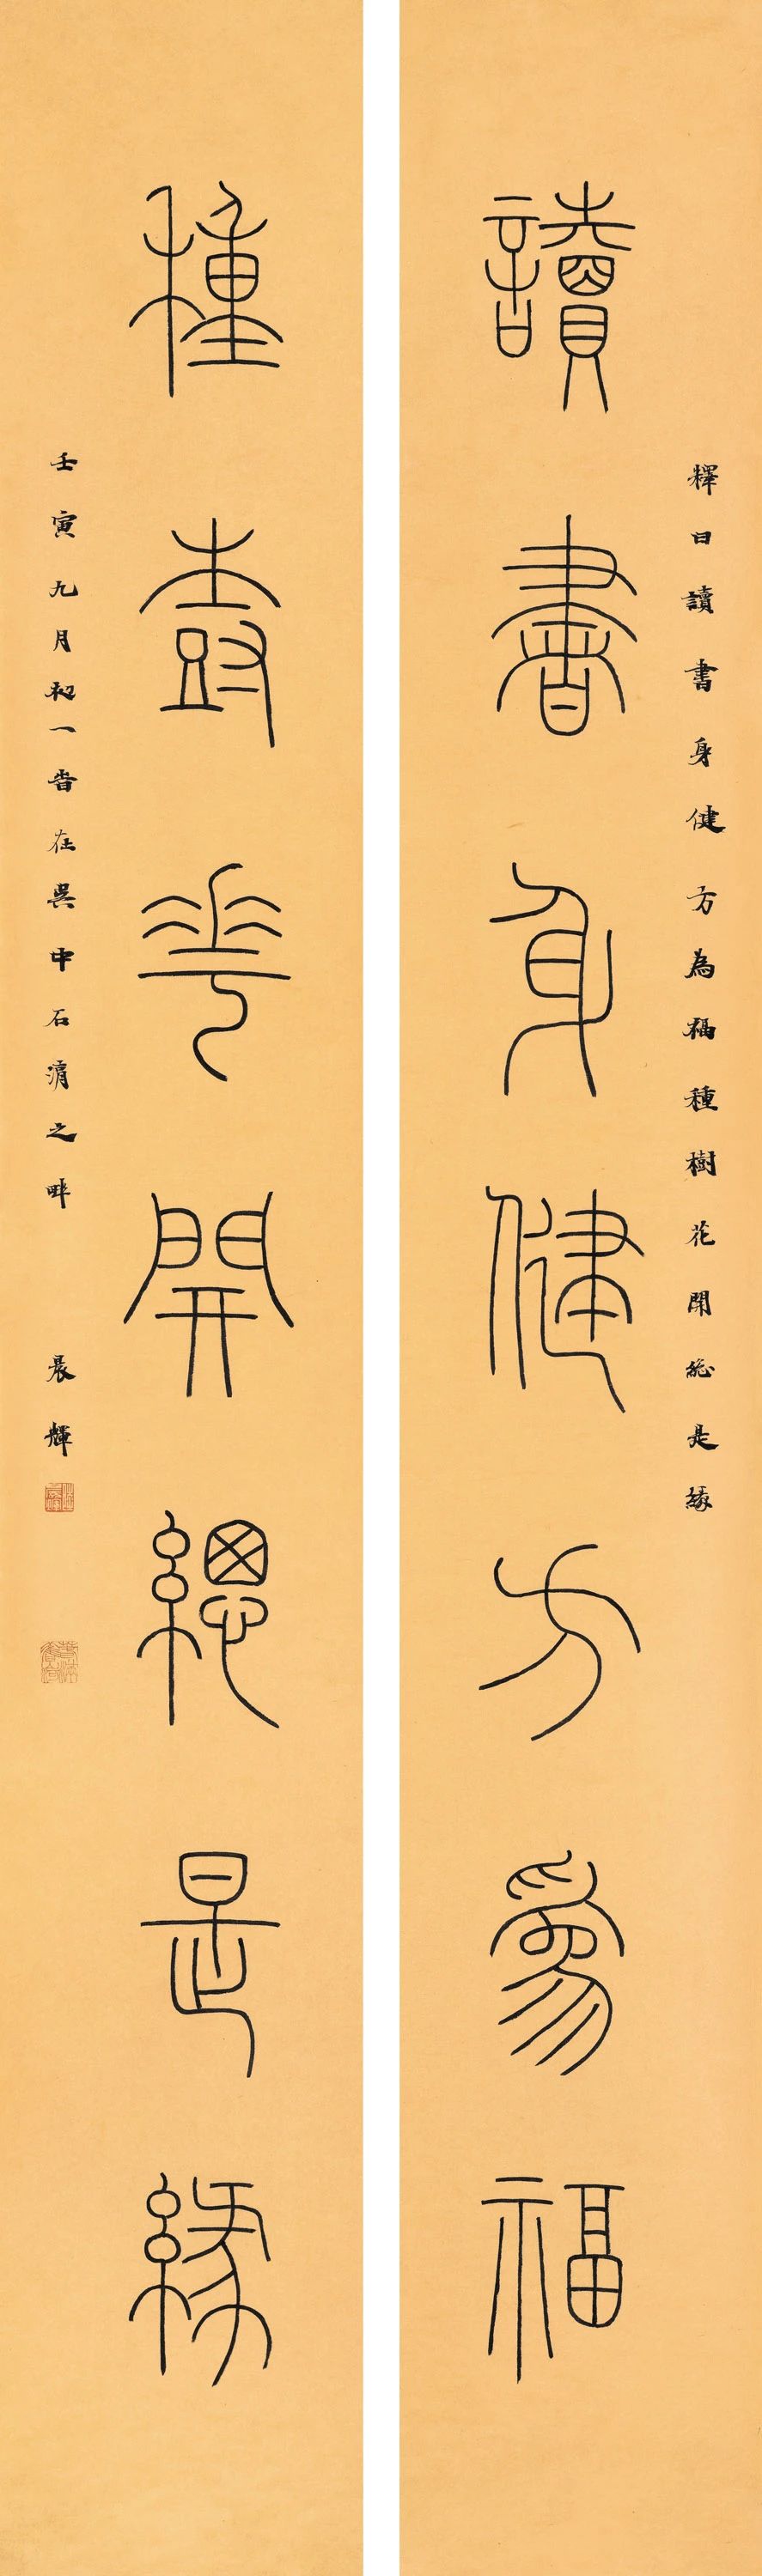 釋曰讀書身健方為福種樹花開總是緣
讀書身健方為福
種尌蕐開總是緣
壬寅九月初一晉在吳中石湖之畔 晨輝